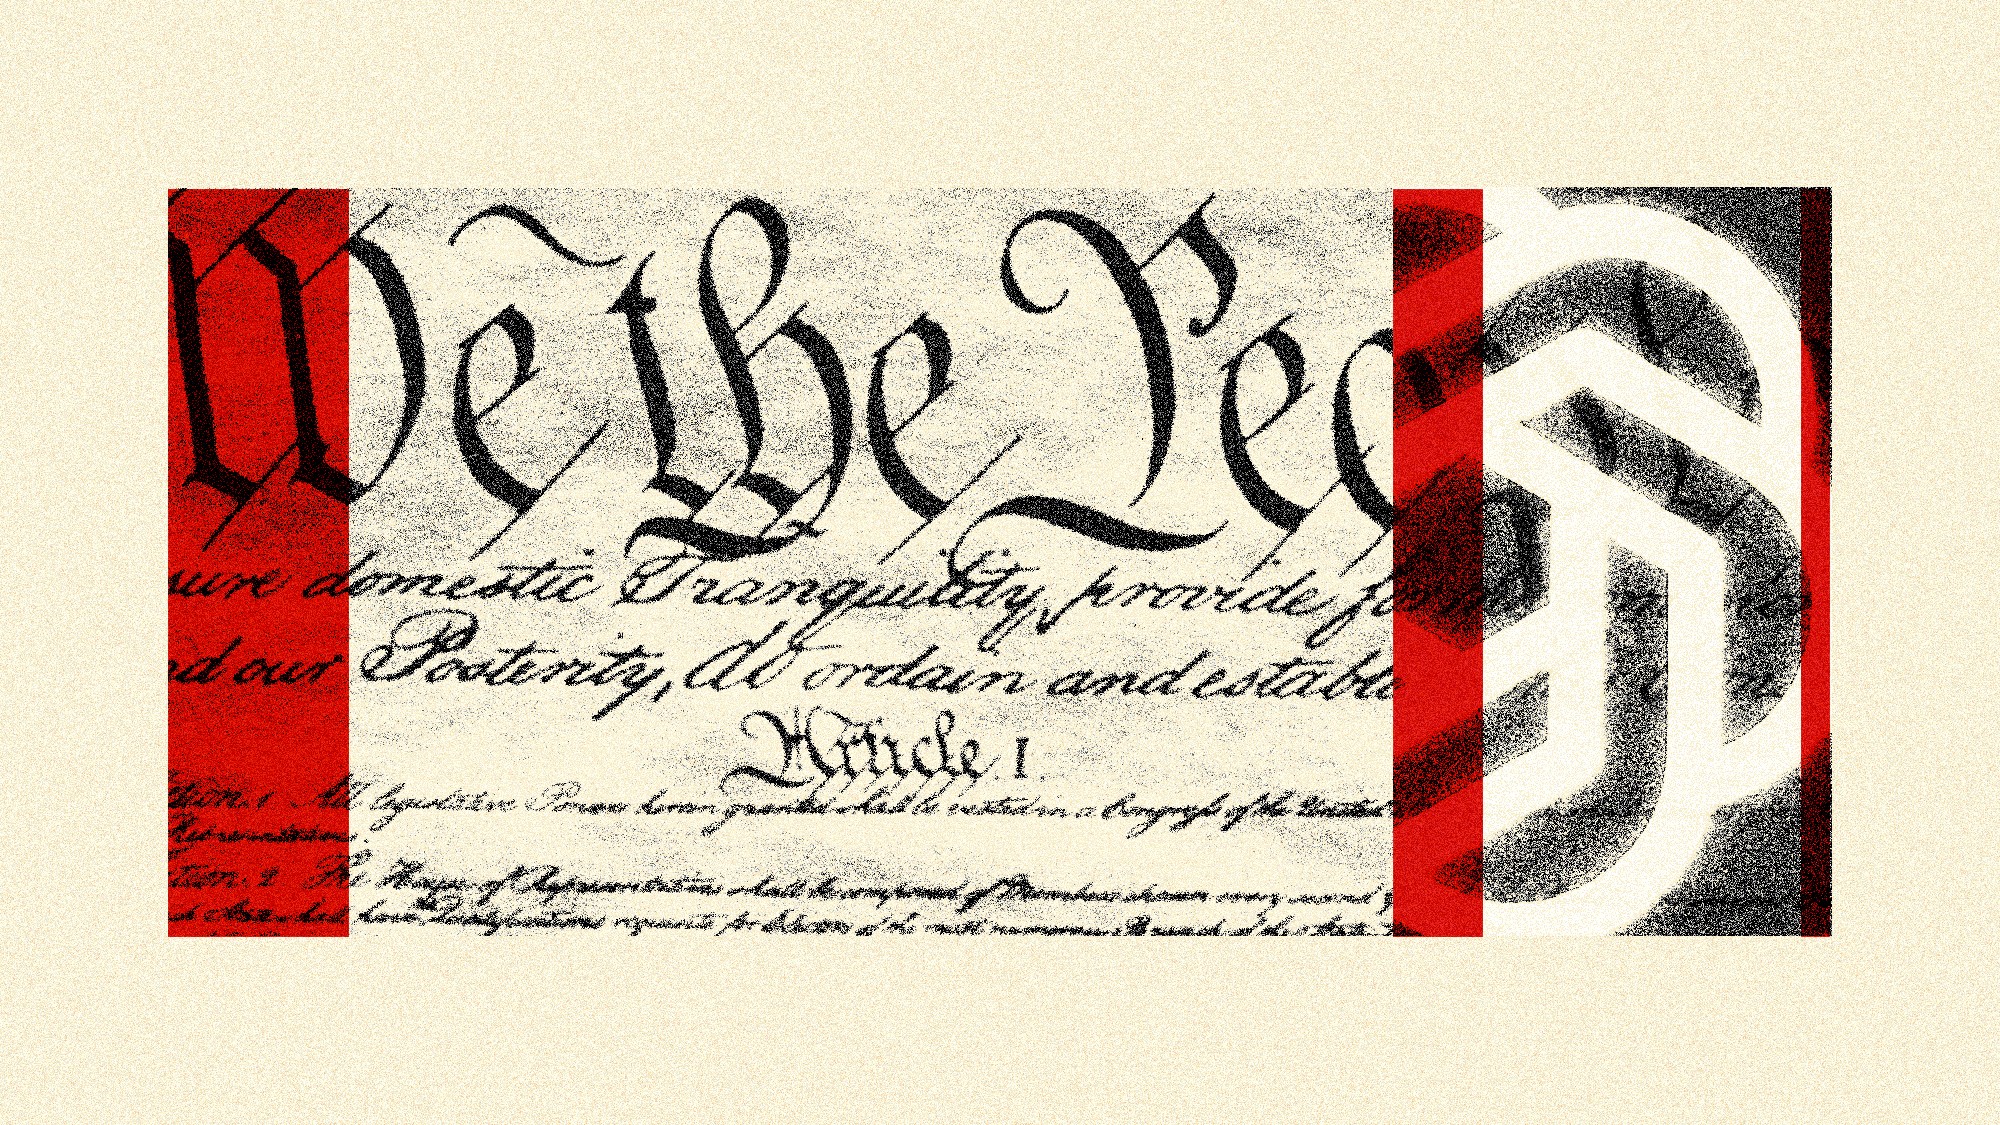 We the Peo
sure domestic Tranquility, provide fo
nd our Posterity, do ordain and establi
Article. I.
ction. 1 All legislative Powers herein granted shall be vested in a Congress of the United
Representatives.
ction. 2 The House of Representatives shall be composed of Members chosen every second y
have Qualifications requisite for Electors of the most numerous Branch of the State